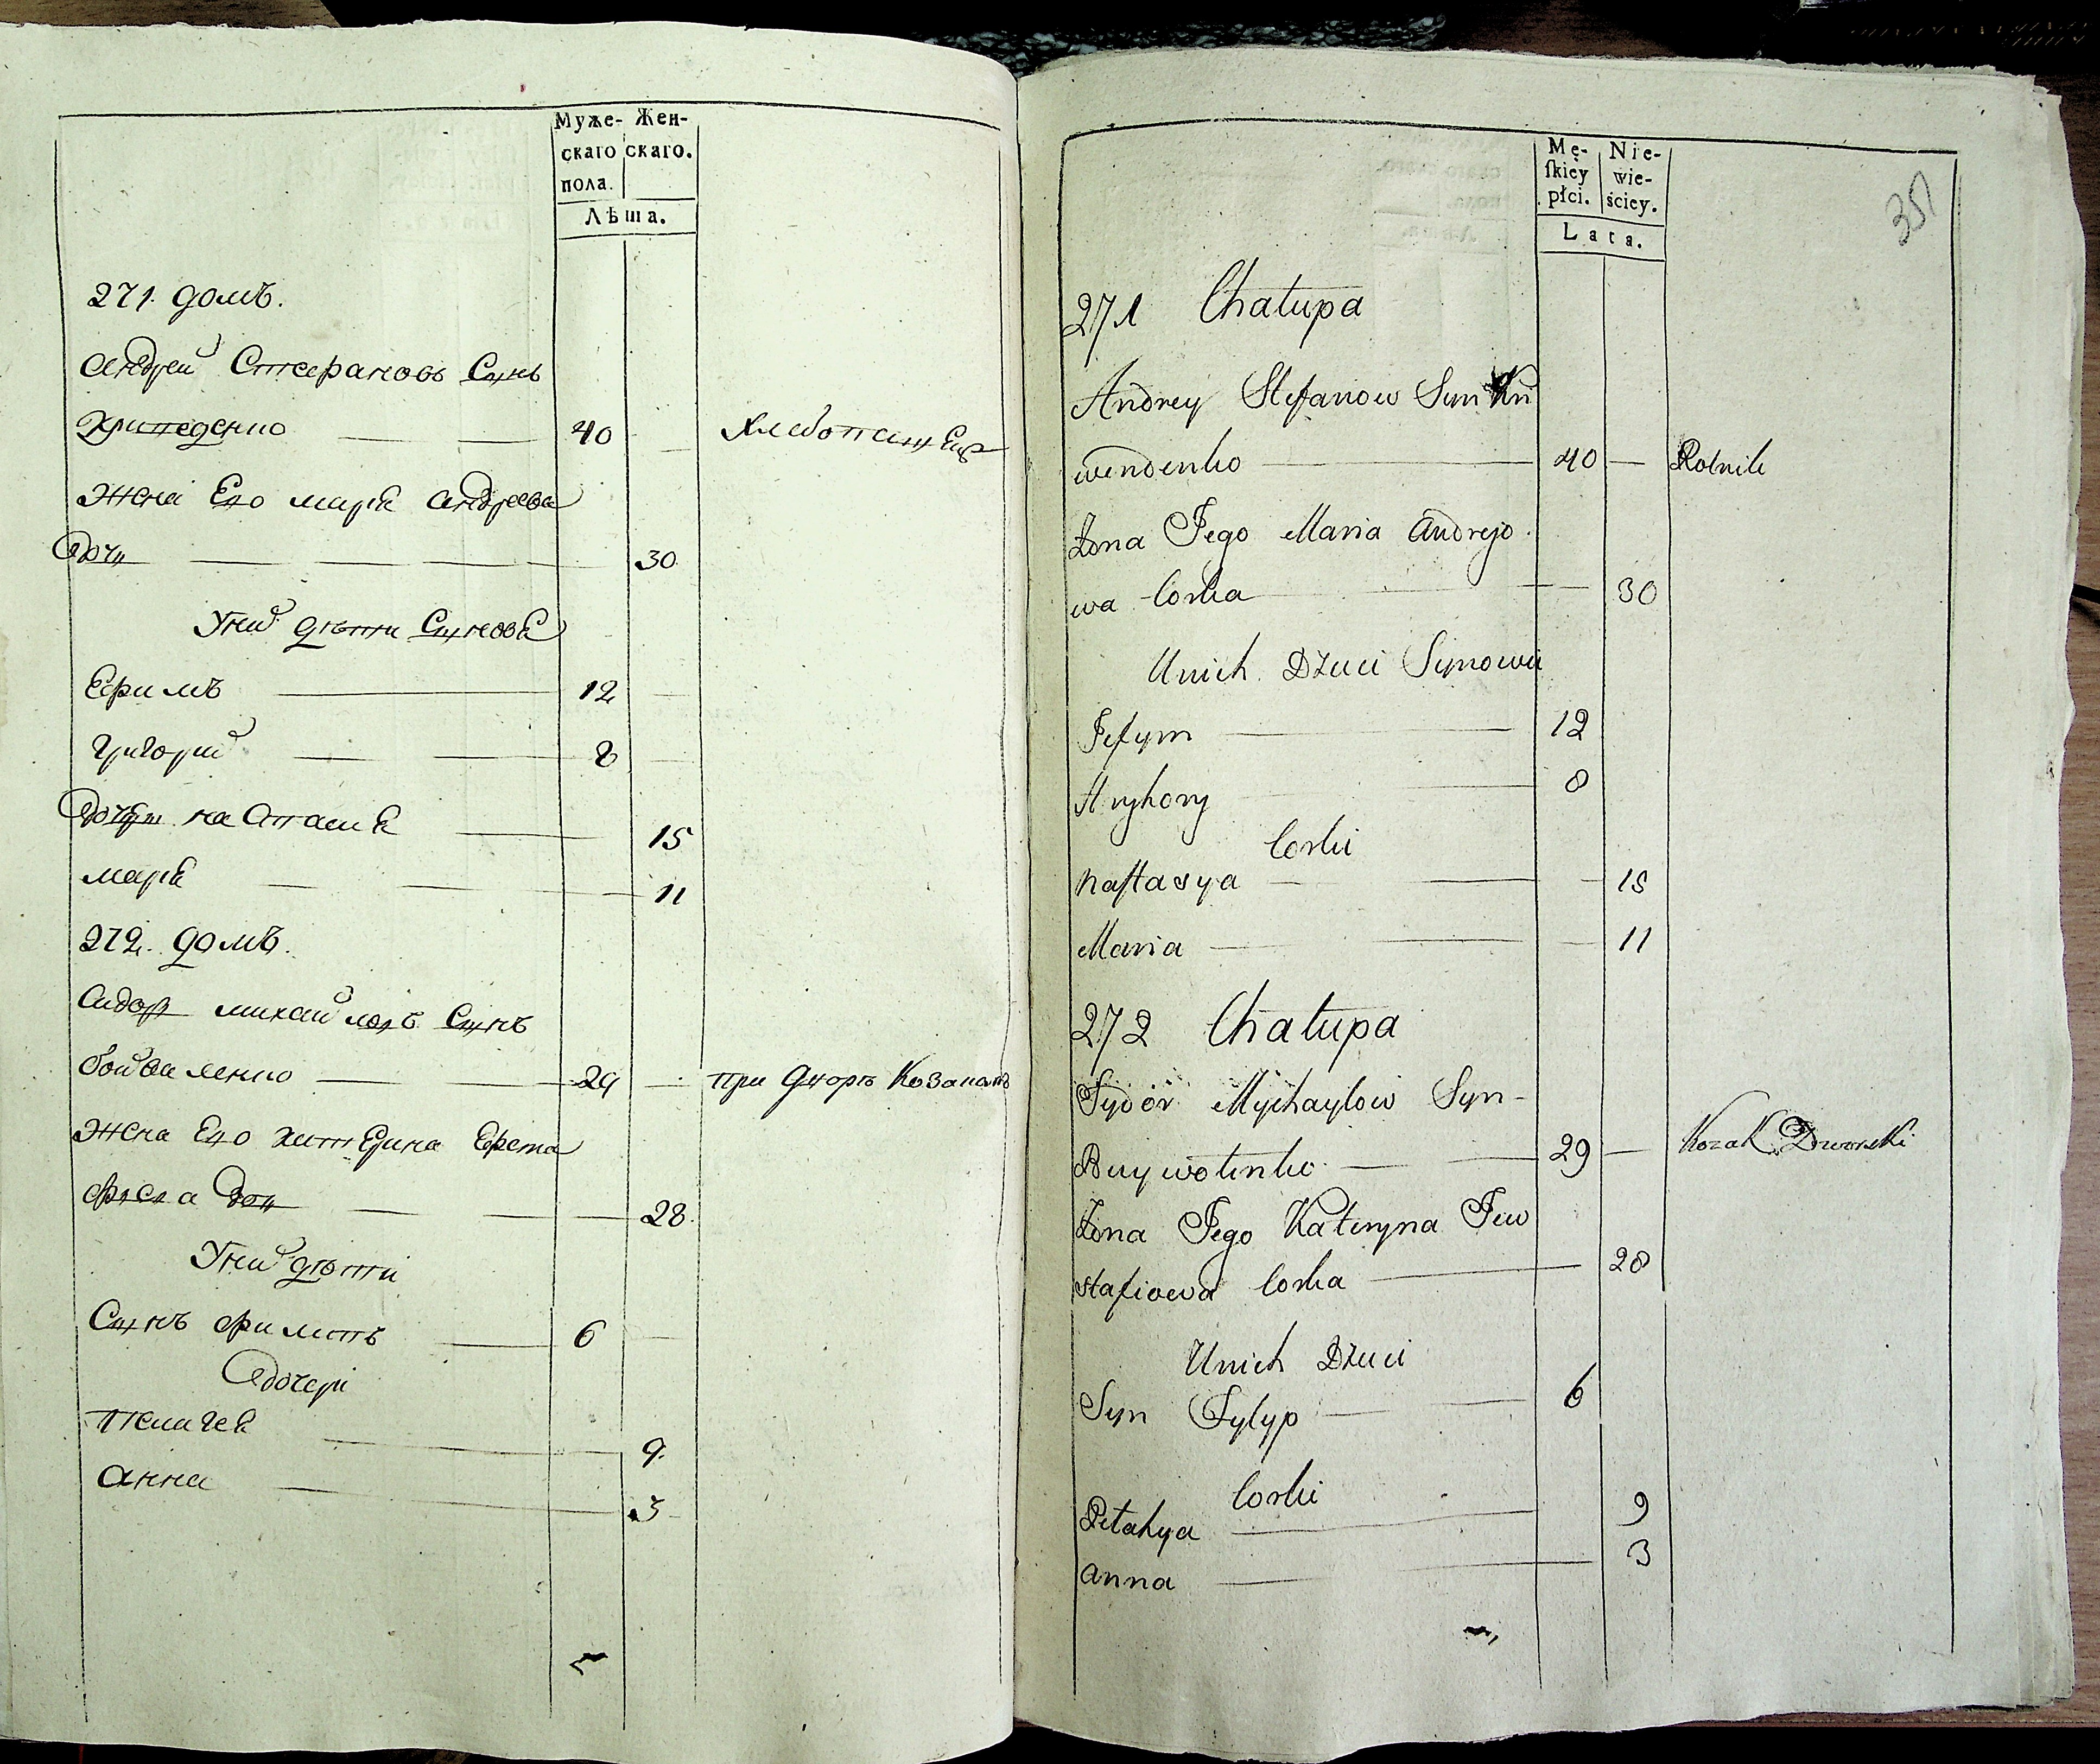 Муже- Жен-
скаго скаго.
пола.
Лѣта.
271. домъ.
Андрей Стефановъ Сынъ
40 Хлебопашецъ
Жена Его Марія Андреева
Дочь 30
У них дѣти Сыновя
Ефимъ 12
Григорий 8
Дочери Настасия 15
Марія 11
272. домъ.
Сидор Михайловъ Сынъ
Бойваленко 29 при Дворѣ Козакомъ
Жена Его Катерина Евста
фиева Дочь 28
У них дѣти
Сынъ Филипъ 6
Дочери
Пелагея 9
Анна 3
Mę- Nie-
ſkiey wie-
płci. ściey.
Lata.
351
271 Chałupa
Andrey Stefanow Syn Kry
wendenko 40 Rolnik
Żona Jego Maria Andrejo
wa Corka 30
Unich Dzieci Synowie
Jefym 12
Hryhory 8
Corki
Naſtasya 15
Maria 11
272 Chałupa
Sydor Mychayłow Syn
Buywolenko 29 Kozak Dworski
Żona Jego Kateryna Jew
stafiowa Corka 28
Unich Dzieci
Syn Fylyp 6
Corki
Pelahya 9
Anna 3